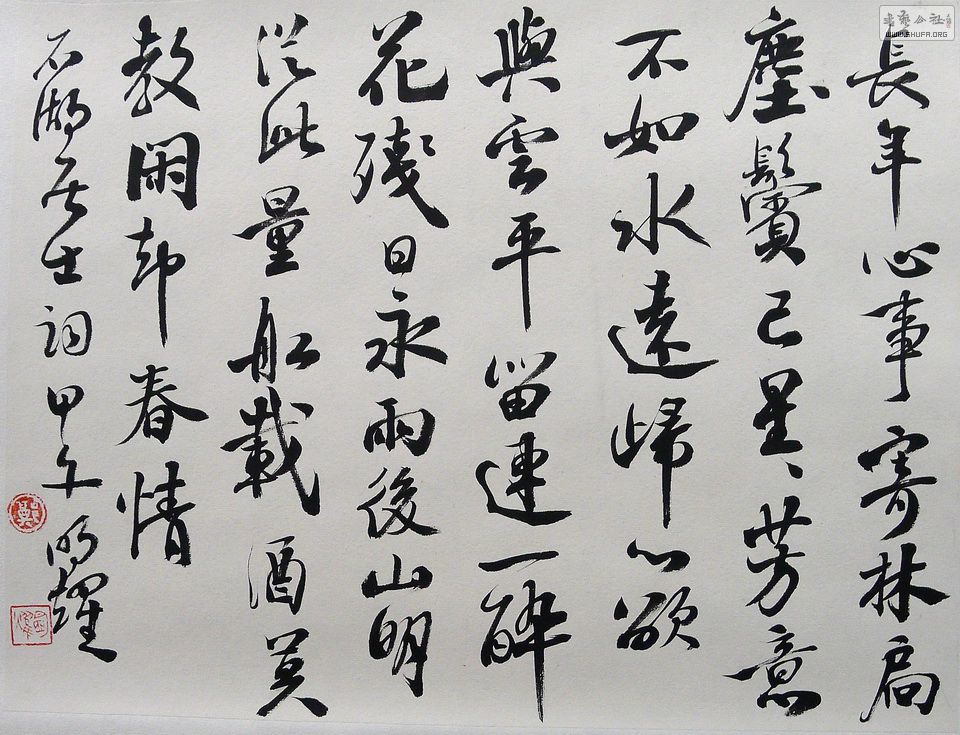 長年心事寄林扃
塵鬢已星星芳意
不如水遠歸心欲
與雲平留連一醉
花殘日永雨後山明
從此量船載酒莫
教閑却春情
石湖居士詞甲午明耀
書藝公社
WWW.SHUFA.ORG